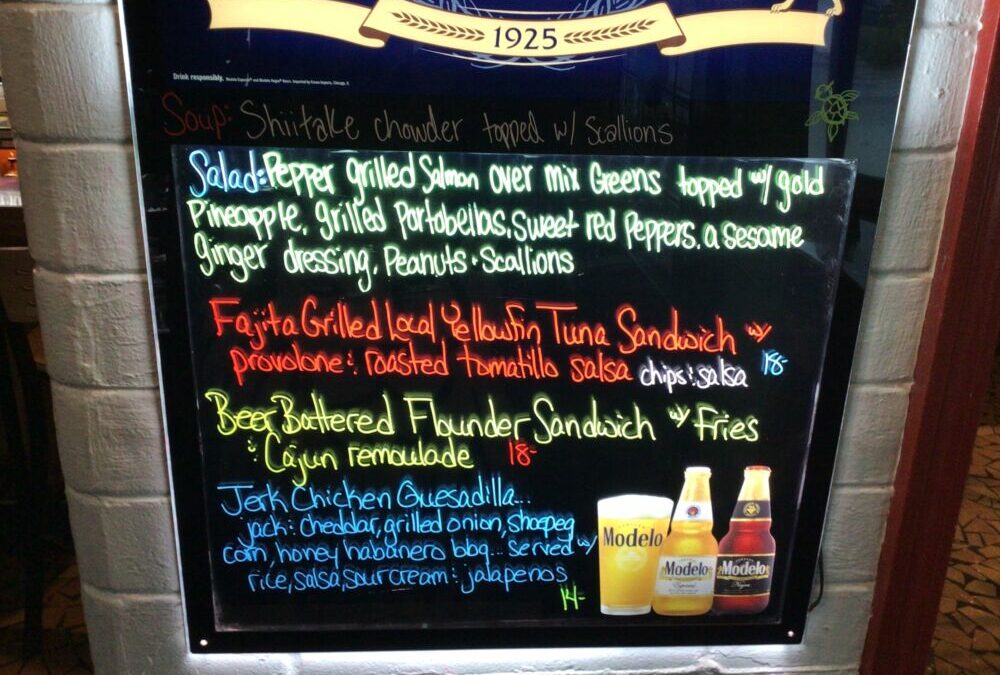 1925
Drink responsibly.
Soup: Shiitake chowder topped w/ Scallions
Salad: Pepper grilled Salmon over mix Greens topped w/ gold
Pineapple, grilled Portobellos, Sweet red Peppers, a sesame
ginger dressing, Peanuts + Scallions
Fajita Grilled Local Yellowfin Tuna Sandwich w/
provolone + roasted tomatillo salsa chips + salsa 18-
Beer Battered Flounder Sandwich w/ Fries
+ Cajun remoulade 18-
Jerk Chicken Quesadilla...
jack + cheddar, grilled onion, shoepeg
corn, honey habanero bbq... served w/
rice, salsa, sour cream + jalapenos
14-
Modelo
Modelo
Especial
Modelo
Negra